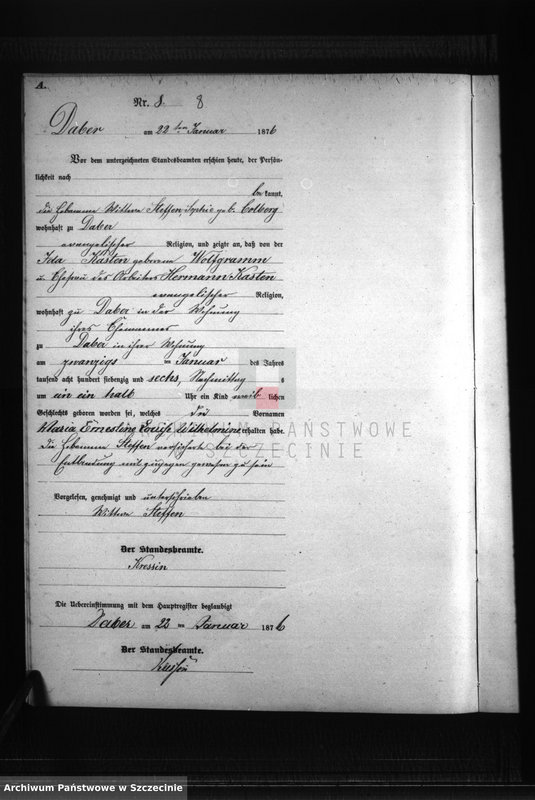 A.
Nr. 8 8
Daber am 22ten Januar 1876
Vor dem unterzeichneten Standesbeamten erschien heute, der Persön-
lichkeit nach
bekannt,
die Hebamme Wittwe Steffen, Sophie geb. Colberg
wohnhaft zu Daber
evangelischer Religion, und zeigte an, daß von der
Ida Kasten geborenen Wolfgramm
u. Ehefrau des Arbeiters Hermann Kasten
evangelischer Religion,
wohnhaft zu Daber in der Wohnung
ihres Ehemannes
zu Daber in ihrer Wohnung
am zwanzigs ten Januar des Jahres
tausend acht hundert siebenzig und sechs, Nachmittag s
um ein ein halb Uhr ein Kind weib lichen
Geschlechts geboren worden sei, welches die Vornamen
Maria Ernestine Louise Wilhelmine erhalten habe.
Die Hebamme Steffen versicherte bei der
Entbindung mit zugegen gewesen zu sein
Vorgelesen, genehmigt und unterschrieben
Wittwe Steffen
Der Standesbeamte.
Kressin
Die Uebereinstimmung mit dem Hauptregister beglaubigt
Daber am 22 ten Januar 1876
Der Standesbeamte.
Kressin
ARCHIWUM PAŃSTWOWE
W SZCZECINIE
Archiwum Państwowe w Szczecinie